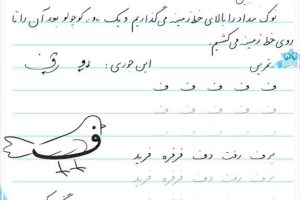 نوک مداد را بالای خط زمینه می‌گذاریم و یک «و» کوچولو بعد آن را تا
روی خط زمینه می‌کشیم.
تمرین
این جوری:
ف ف ف ف ف
برف رفت دف فرفره فرید